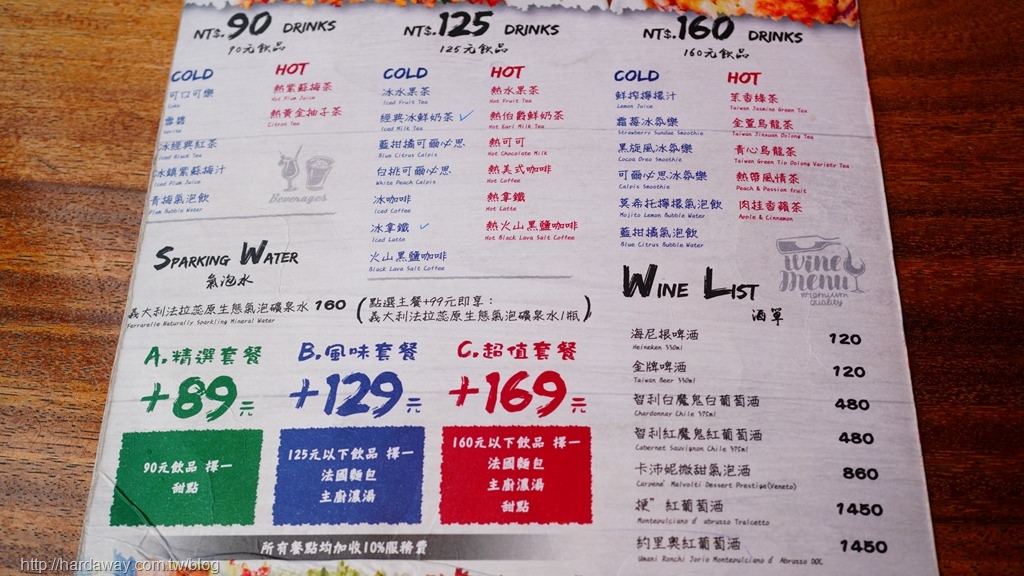 NT$.90 DRINKS
90元飲品
COLD
可口可樂
Coke
雪碧
Sprite
冰經典紅茶
Iced Black Tea
冰鎮紫蘇梅汁
Iced Plum Juice
青梅氣泡飲
Plum Bubble Water
HOT
熱紫蘇梅茶
Hot Plum Juice
熱黃金柚子茶
Citron Tea
Beverages
NT$.125 DRINKS
125元飲品
COLD
冰水果茶
Iced Fruit Tea
經典冰鮮奶茶
Iced Milk Tea
藍柑橘可爾必思
Blue Citrus Calpis
白桃可爾必思
White Peach Calpis
冰咖啡
Iced Coffee
冰拿鐵
Iced Latte
火山黑鹽咖啡
Black Lava Salt Coffee
HOT
熱水果茶
Hot Fruit Tea
熱伯爵鮮奶茶
Hot Earl Milk Tea
熱可可
Hot Chocolate Milk
熱美式咖啡
Hot Coffee
熱拿鐵
Hot Latte
熱火山黑鹽咖啡
Hot Black Lava Salt Coffee
NT$.160 DRINKS
160元飲品
COLD
鮮搾檸檬汁
Lemon Juice
霜莓冰氛樂
Strawberry Sundae Smoothie
黑旋風冰氛樂
Cocoa Oreo Smoothie
可爾必思冰氛樂
Calpis Smoothie
莫希托檸檬氣泡飲
Mojito Lemon Bubble Water
藍柑橘氣泡飲
Blue Citrus Bubble Water
HOT
茉香綠茶
Taiwan Jasmine Green Tea
金萱烏龍茶
Taiwan Jinxuan Oolong Tea
青心烏龍茶
Taiwan Green Tip Oolong Variety Tea
熱帶風情茶
Peach & Passion fruit
肉桂香蘋茶
Apple & Cinnamon
SPARKING WATER
氣泡水
義大利法拉蕊原生態氣泡礦泉水 160
Ferrarelle Naturally Sparkling Mineral Water
(點選主餐+99元即享：
義大利法拉蕊原生態氣泡礦泉水1瓶)
A.精選套餐
+89元
90元飲品 擇一
甜點
B.風味套餐
+129元
125元以下飲品 擇一
法國麵包
主廚濃湯
C.超值套餐
+169元
160元以下飲品 擇一
法國麵包
主廚濃湯
甜點
WINE LIST
酒單
Wine Menu
Premium Quality
海尼根啤酒 120
Heineken 330ml
金牌啤酒 120
Taiwan Beer 330ml
智利白魔鬼白葡萄酒 480
Chardonnay Chile 375ml
智利紅魔鬼紅葡萄酒 480
Cabernet Sauvignon Chile 375ml
卡沛妮微甜氣泡酒 860
Carpene' Malvolti Dessert Prestige(Veneto)
梗”紅葡萄酒 1450
Montepulciano d' abruzzo Tralcetto
約里奧紅葡萄酒 1450
Umani Ronchi Jorio Montepulciano d' Abruzzo DOC
所有餐點均加收10%服務費
http://hardaway.com.tw/blog